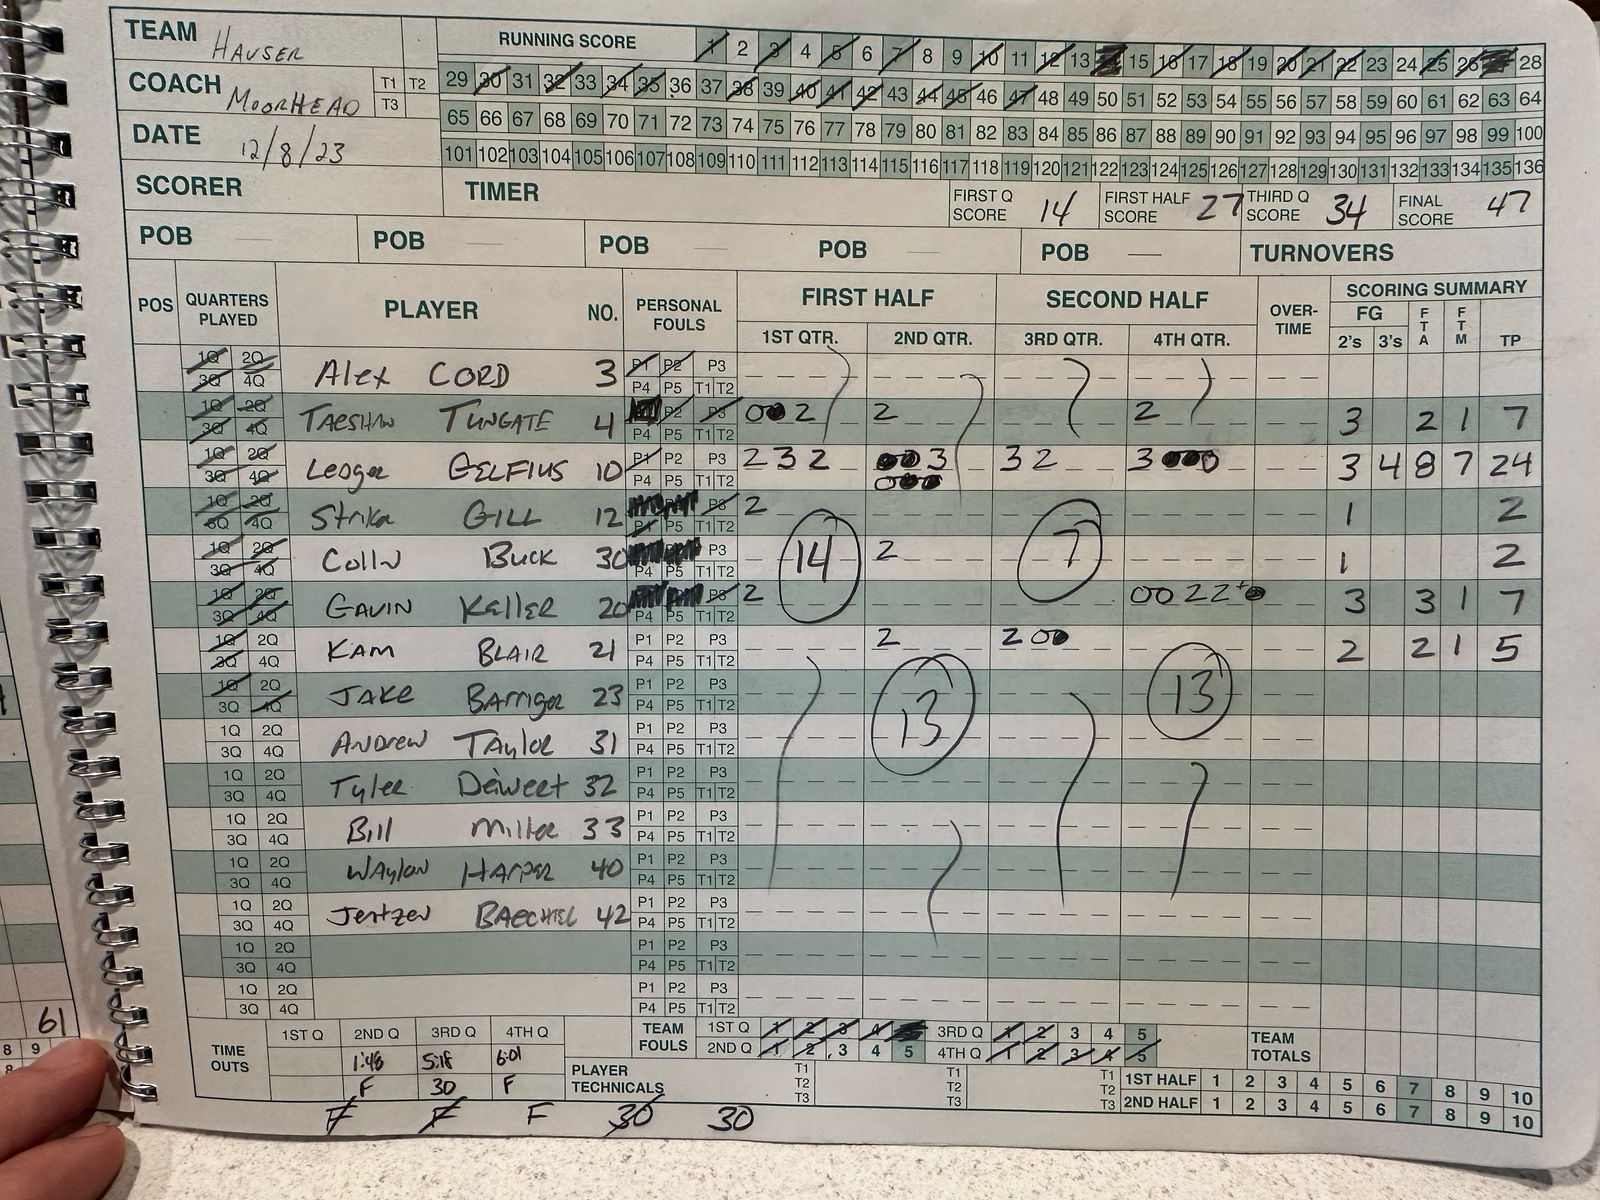 TEAM Hauser RUNNING SCORE 1 2 3 4 5 6 7 8 9 10 11 12 13 14 15 16 17 18 19 20 21 22 23 24 25 26 27 28
COACH MoorHead T1 T2 T3 29 30 31 32 33 34 35 36 37 38 39 40 41 42 43 44 45 46 47 48 49 50 51 52 53 54 55 56 57 58 59 60 61 62 63 64
65 66 67 68 69 70 71 72 73 74 75 76 77 78 79 80 81 82 83 84 85 86 87 88 89 90 91 92 93 94 95 96 97 98 99 100
DATE 12/8/23 101 102 103 104 105 106 107 108 109 110 111 112 113 114 115 116 117 118 119 120 121 122 123 124 125 126 127 128 129 130 131 132 133 134 135 136
SCORER TIMER FIRST Q SCORE 14 FIRST HALF SCORE 27 THIRD Q SCORE 34 FINAL SCORE 47
POB POB POB POB POB TURNOVERS
POS QUARTERS PLAYED PLAYER NO. PERSONAL FOULS FIRST HALF SECOND HALF OVER-TIME SCORING SUMMARY
1ST QTR. 2ND QTR. 3RD QTR. 4TH QTR. FG 2's 3's FTA FTM TP
1Q 2Q 3Q 4Q Alex CORD 3 P1 P2 P3 P4 P5 T1 T2
1Q 2Q 3Q 4Q TAESHAN TUNGATE 4 P2 P3 P4 P5 T1 T2 002 2 2 3 2 1 7
1Q 2Q 3Q 4Q Ledger GELFIUS 10 P1 P2 P3 P4 P5 T1 T2 2 3 2 003 000 3 2 3000 3 4 8 7 24
1Q 2Q 3Q 4Q Strika GILL 12 P3 P4 P5 T1 T2 2 1 2
1Q 2Q 3Q 4Q Collin Buck 30 P3 P4 P5 T1 T2 14 2 7 1 2
1Q 2Q 3Q 4Q GAVIN Keller 20 P3 P4 P5 T1 T2 2 0022+0 3 3 1 7
1Q 2Q 3Q 4Q KAM BLAIR 21 P1 P2 P3 P4 P5 T1 T2 2 200 2 2 1 5
1Q 2Q 3Q 4Q JAKE Barriger 23 P1 P2 P3 P4 P5 T1 T2 13 13
1Q 2Q 3Q 4Q Andrew Taylor 31 P1 P2 P3 P4 P5 T1 T2
1Q 2Q 3Q 4Q Tyler Deiwert 32 P1 P2 P3 P4 P5 T1 T2
1Q 2Q 3Q 4Q Bill Miller 33 P1 P2 P3 P4 P5 T1 T2
1Q 2Q 3Q 4Q Waylon Harper 40 P1 P2 P3 P4 P5 T1 T2
1Q 2Q 3Q 4Q Jentzen BAECHTEL 42 P1 P2 P3 P4 P5 T1 T2
1Q 2Q 3Q 4Q P1 P2 P3 P4 P5 T1 T2
1Q 2Q 3Q 4Q P1 P2 P3 P4 P5 T1 T2
61
TIME OUTS 1ST Q 2ND Q 3RD Q 4TH Q TEAM FOULS 1ST Q 1 2 3 4 3RD Q 1 2 3 4 5 TEAM TOTALS
1:48 5:18 6:01 2ND Q 1 2 3 4 5 4TH Q 1 2 3 4 5
F 30 F PLAYER TECHNICALS T1 T2 T3 T1 T2 T3 T1 T2 T3 1ST HALF 1 2 3 4 5 6 7 8 9 10
2ND HALF 1 2 3 4 5 6 7 8 9 10
F F F 30 30
8 9
8